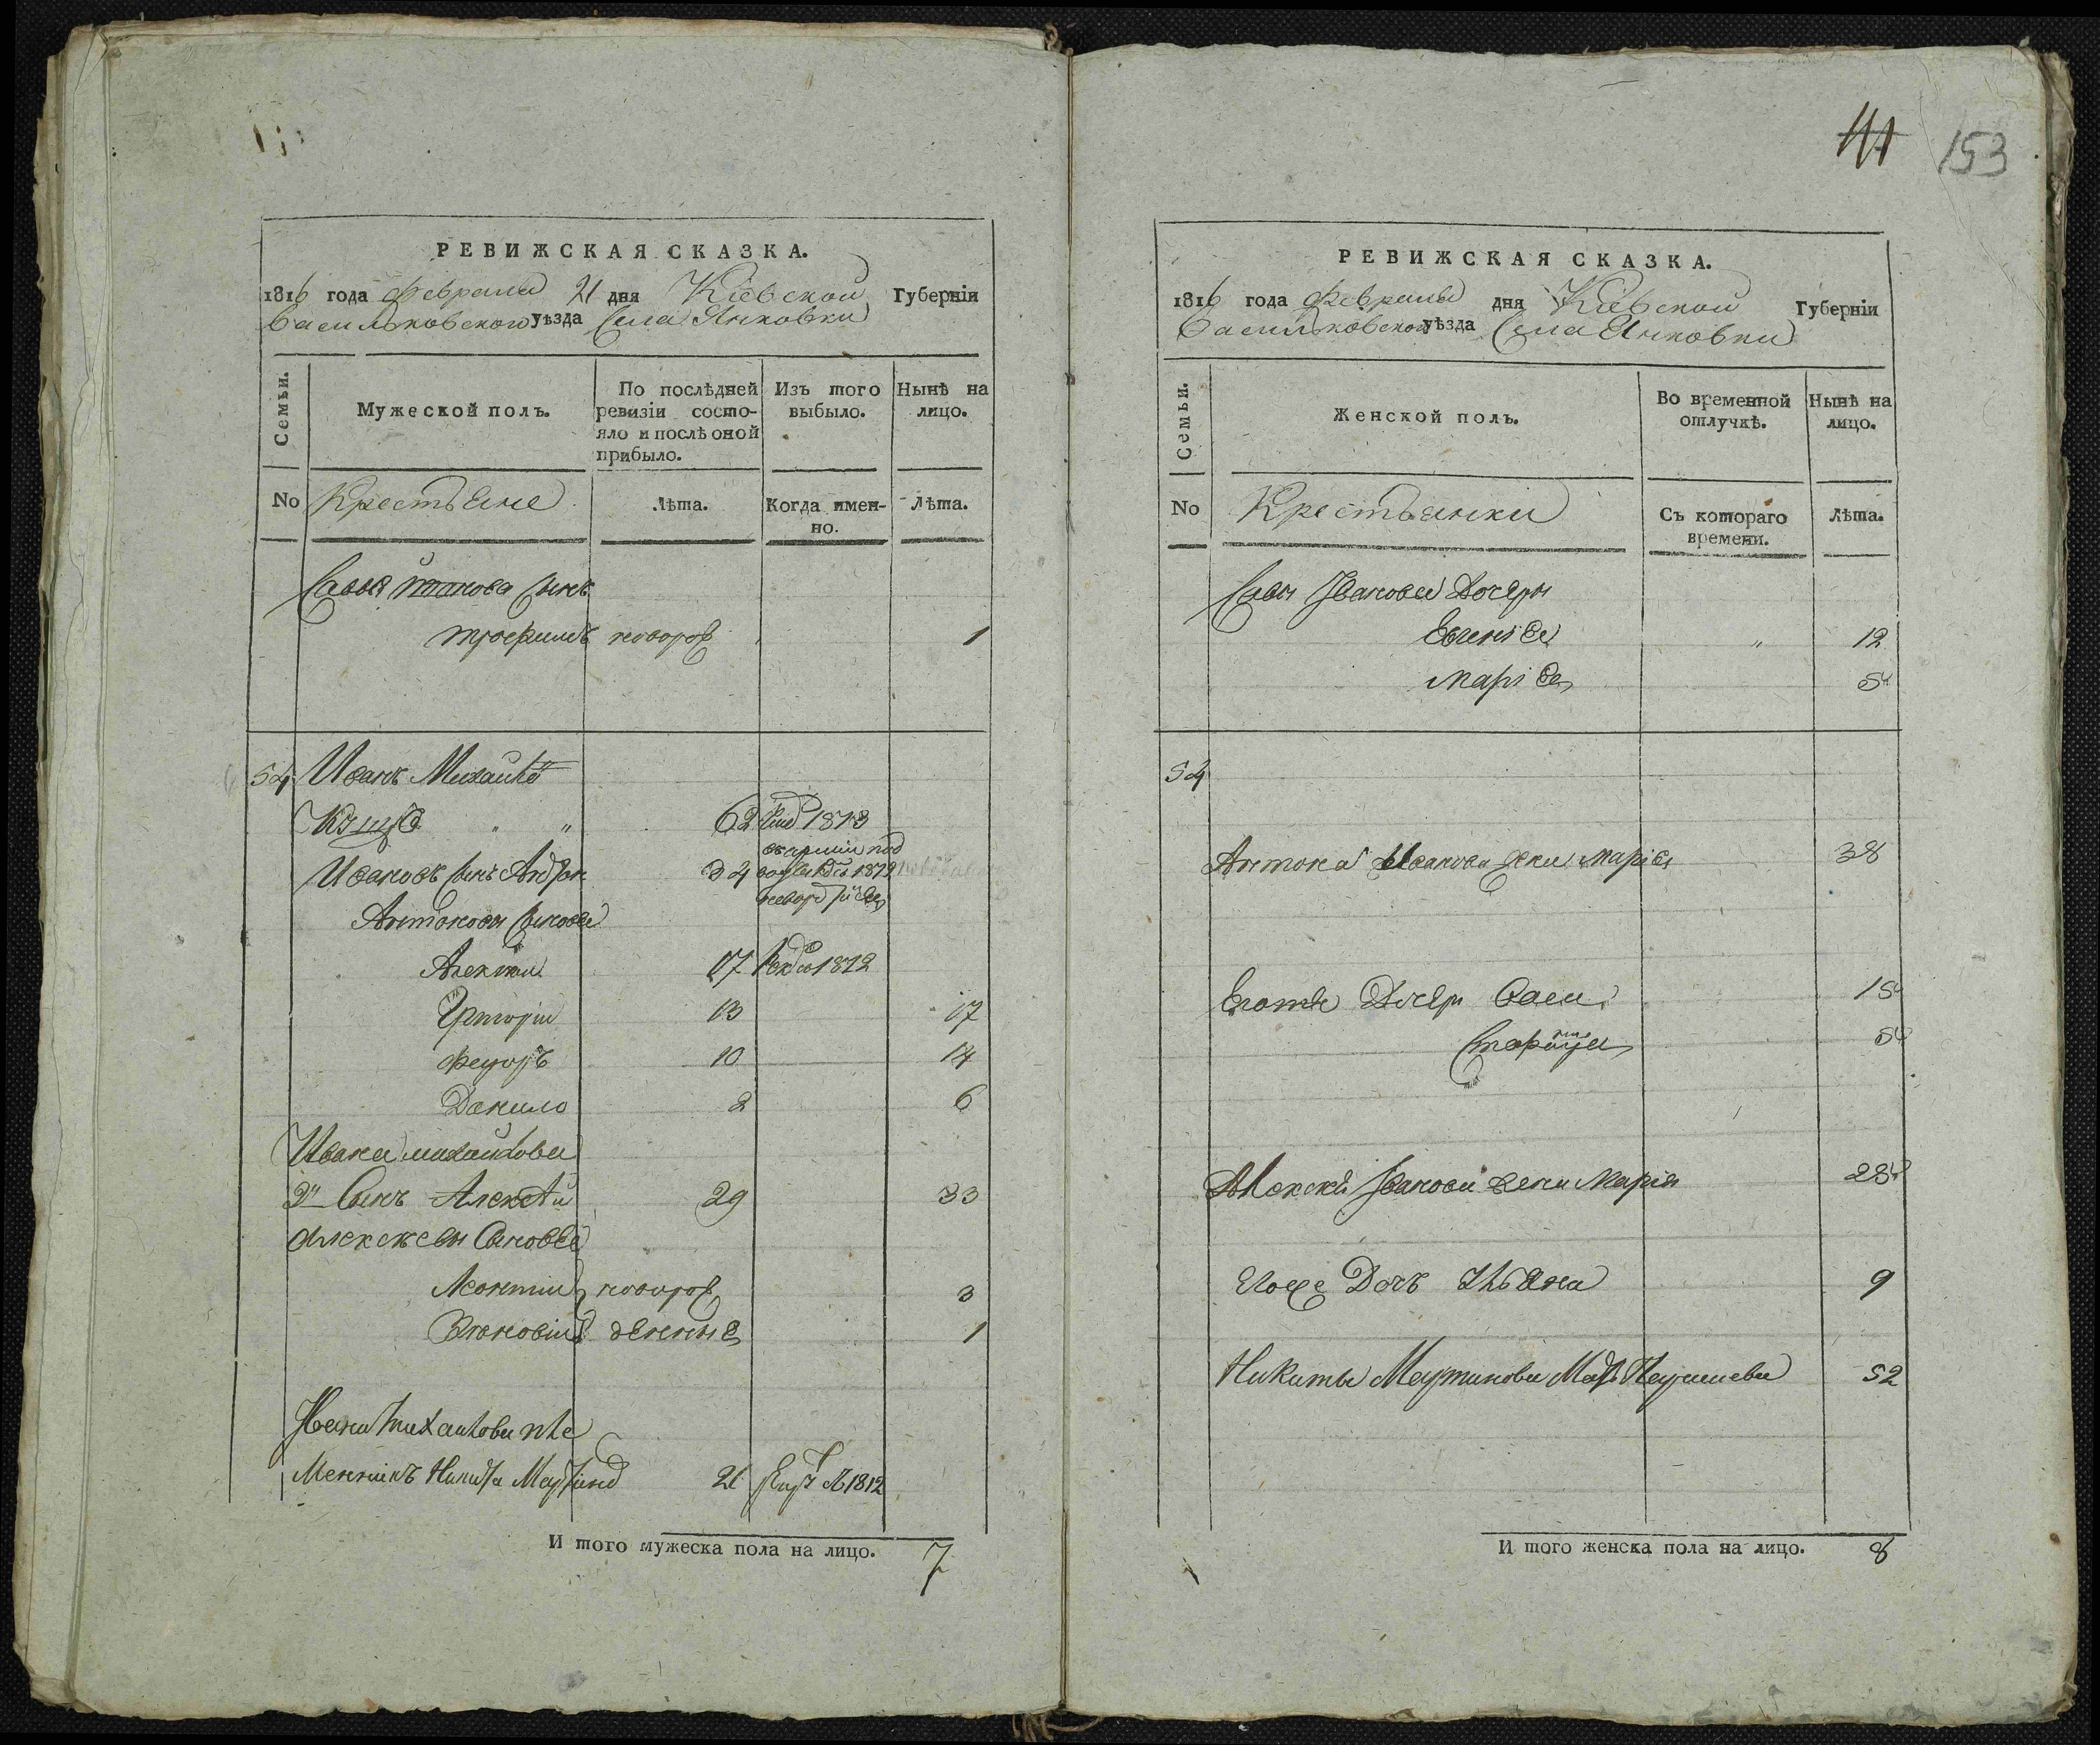 РЕВИЖСКАЯ СКАЗКА.
1816 года февраля 21 дня Кіевской Губерніи
Васильковского уѣзда Села Янковки
Семьи.
Мужеской полъ.
По послѣдней ревизіи состояло и послѣ оной прибыло.
Изъ того выбыло.
Нынѣ на лицо.
No
Крестьяне
Лѣта.
Когда именно.
Лѣта.
Савы Иванова сынъ
Трофимъ новорож 1
54 Иванъ Михайло
62 1813
Ивановъ сынъ Антон 34 1812
Антоновы сыновья
Алексей 17 1812
Григорій 13 17
Федоръ 10 14
Данило 2 6
Ивана Михайлова
2й Сынъ Алексѣй 29 33
Алексѣевы Сыновья
Леонтий новорож 3
Зѣновій денныя 1
Ивана Михайлова пле
менникъ Никита Мартинов 21 1812
И того мужеска пола на лицо. 7
111 153
РЕВИЖСКАЯ СКАЗКА.
1816 года февраля дня Кіевской Губерніи
Васильковского уѣзда Села Янковки
Семьи.
Женской полъ.
Во временной отлучкѣ.
Нынѣ на лицо.
No
Крестьянки
Съ котораго времени.
Лѣта.
Савы Иванова Дочери
Евгенія " 12
Марія 5
54
Антона Иванова жена Марія 38
Его Дочери 15
5
Алексѣя Иванова жена Марія 28
Его Дочь Ульяна 9
Никиты Мартинова Мать 52
И того женска пола на лицо. 8